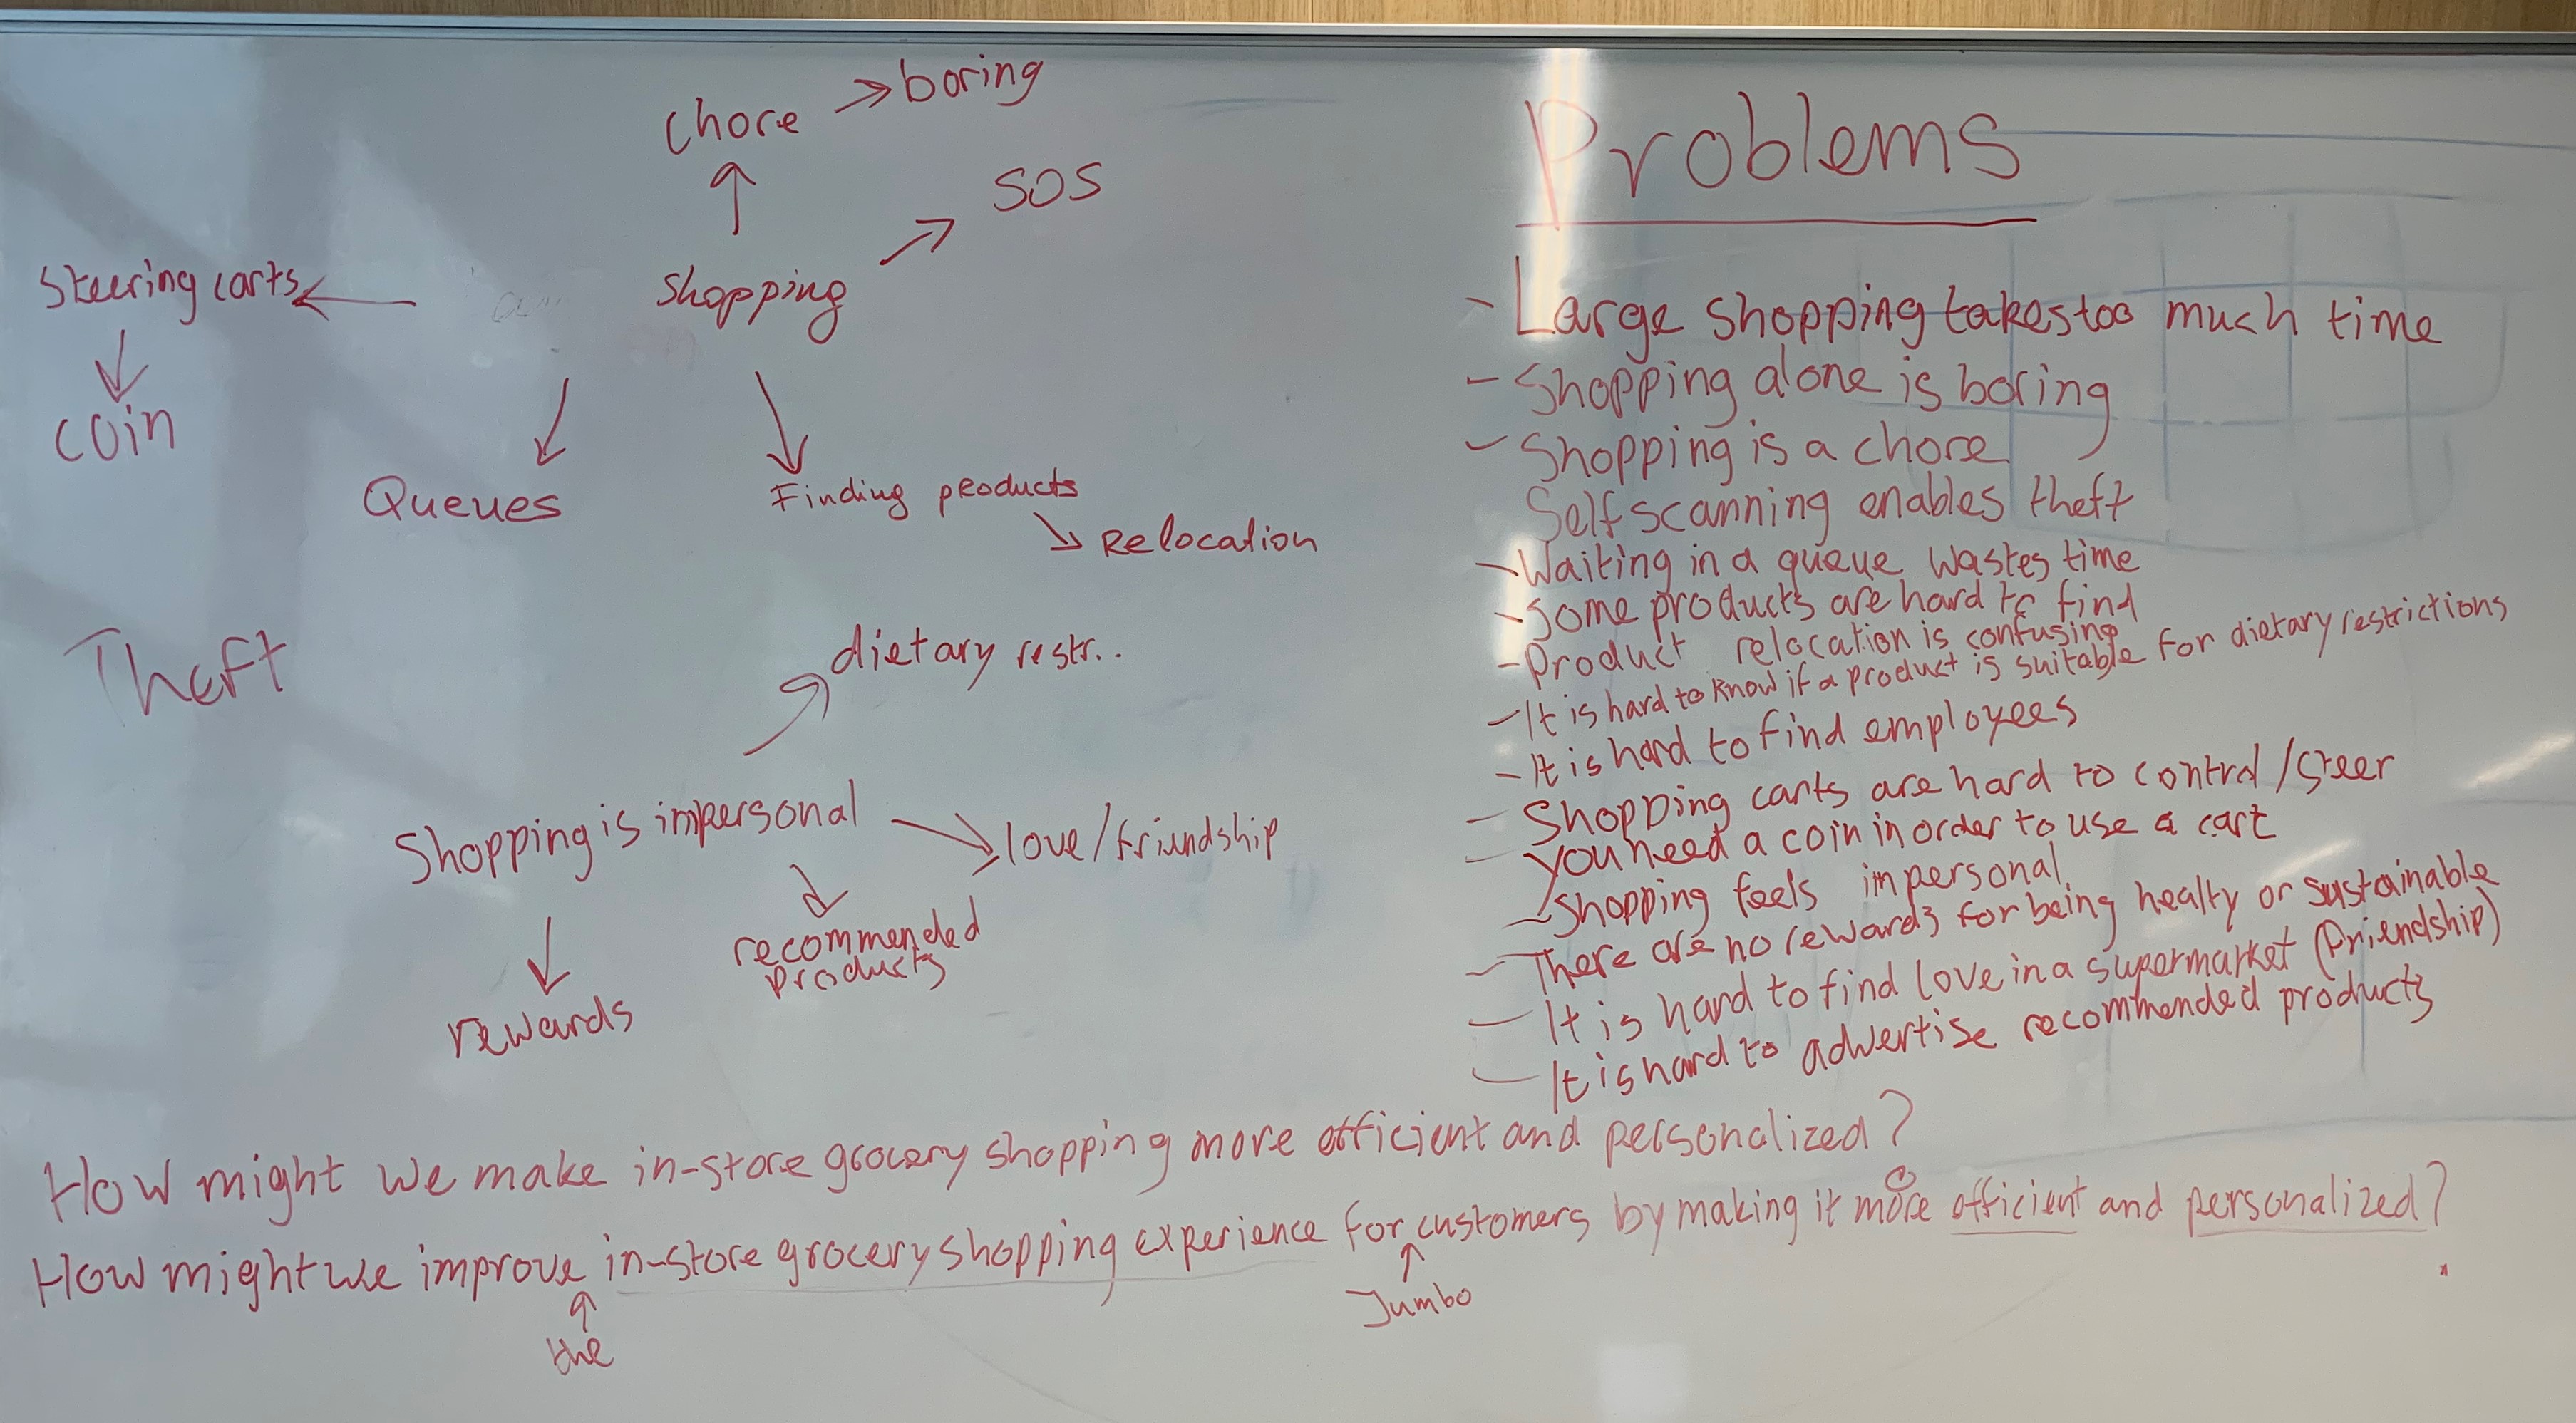 chore → boring
SOS
Shopping
Steering carts
coin
Queues
Finding products
Relocation
Theft
dietary restr..
Shopping is impersonal
love/friendship
recommended
products
rewards
Problems
- Large shopping takes too much time
- Shopping alone is boring
- Shopping is a chore
Self scanning enables theft
- Waiting in a queue wastes time
- Some products are hard to find
- Product relocation is confusing
- It is hard to know if a product is suitable for dietary restrictions
- It is hard to find employees
- Shopping carts are hard to control/steer
- you need a coin in order to use a cart
- Shopping feels impersonal
- There are no rewards for being healty or sustainable
- It is hard to find love in a supermarket (friendship)
- It is hard to advertise recommended products
How might we make in-store grocery shopping more efficient and personalized?
How might we improve in-store grocery shopping experience for customers by making it more efficient and personalized?
the
Jumbo